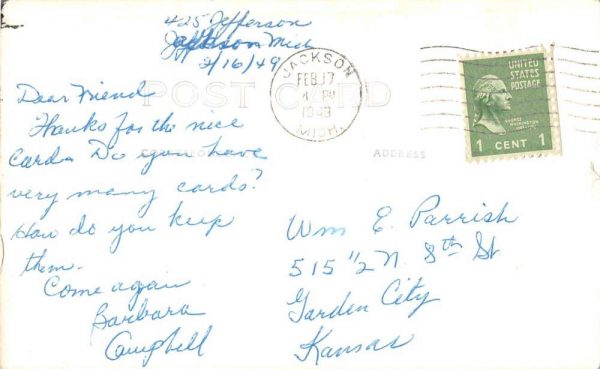 425 Jefferson
Jackson Mich
2/16/49
JACKSON
FEB 17
PM
1949
MICH.
UNITED
STATES
POSTAGE
GEORGE
WASHINGTON
1 CENT 1
POST CARD
ADDRESS
Dear Friend
Thanks for the nice
Card. Do you have
very many cards?
How do you keep
them.
Come again
Barbara
Campbell
Wm E. Parrish
515 1/2 N. 8th St
Garden City
Kansas